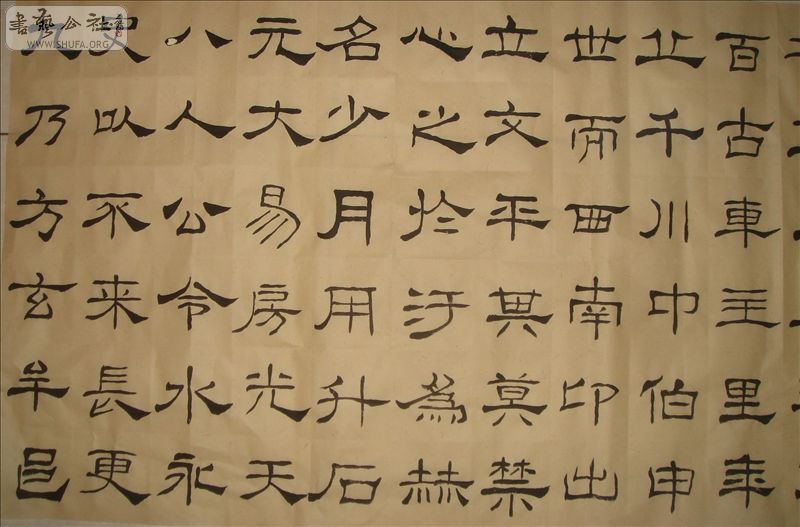 百古車主里年
止千川巾伯申
世而西南印出
立文平其莫禁
心之於汙為赫
名少月用升石
元大易房光天
八人公令水永
以不来長更
乃方玄牟邑
書藝公社
WWW.SHUFA.ORG